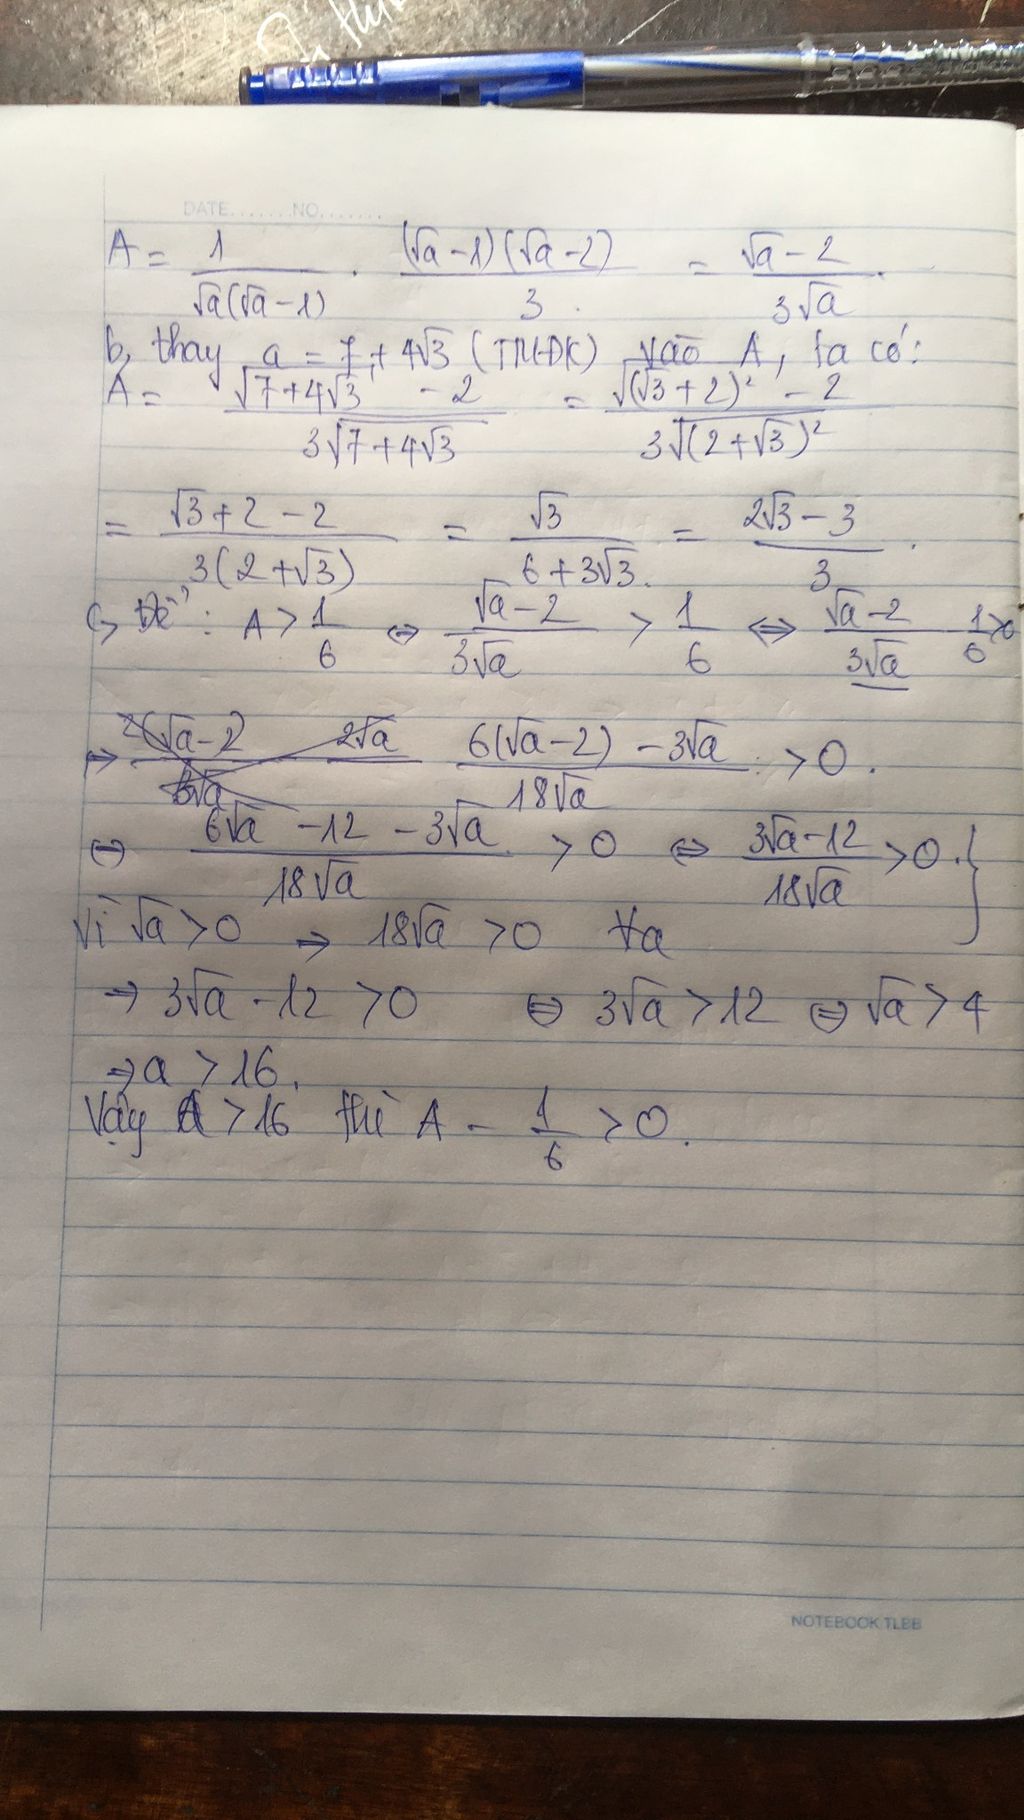 DATE.......NO.......
A = 1/(√a(√a-1)) · ((√a-1)(√a-2))/3 = (√a-2)/(3√a).
b, thay a = 7+4√3 (TMĐK) vào A, ta có:
A = (√(7+4√3) - 2)/(3√(7+4√3)) = (√((√3+2)²) - 2)/(3√((2+√3)²))
= (√3+2-2)/(3(2+√3)) = √3/(6+3√3) = (2√3-3)/3.
c, Để: A > 1/6 ⇔ (√a-2)/(3√a) > 1/6 ⇔ (√a-2)/(3√a) - 1/6 >0
⇔ (6(√a-2) - 3√a)/(18√a) > 0.
⇔ (6√a - 12 - 3√a)/(18√a) > 0 ⇔ (3√a-12)/(18√a) > 0. }
Vì √a > 0 ⇒ 18√a > 0 ∀a
⇒ 3√a - 12 > 0 ⇔ 3√a > 12 ⇔ √a > 4
⇒ a > 16.
Vậy a > 16 thì A - 1/6 > 0.
NOTEBOOK TLBB